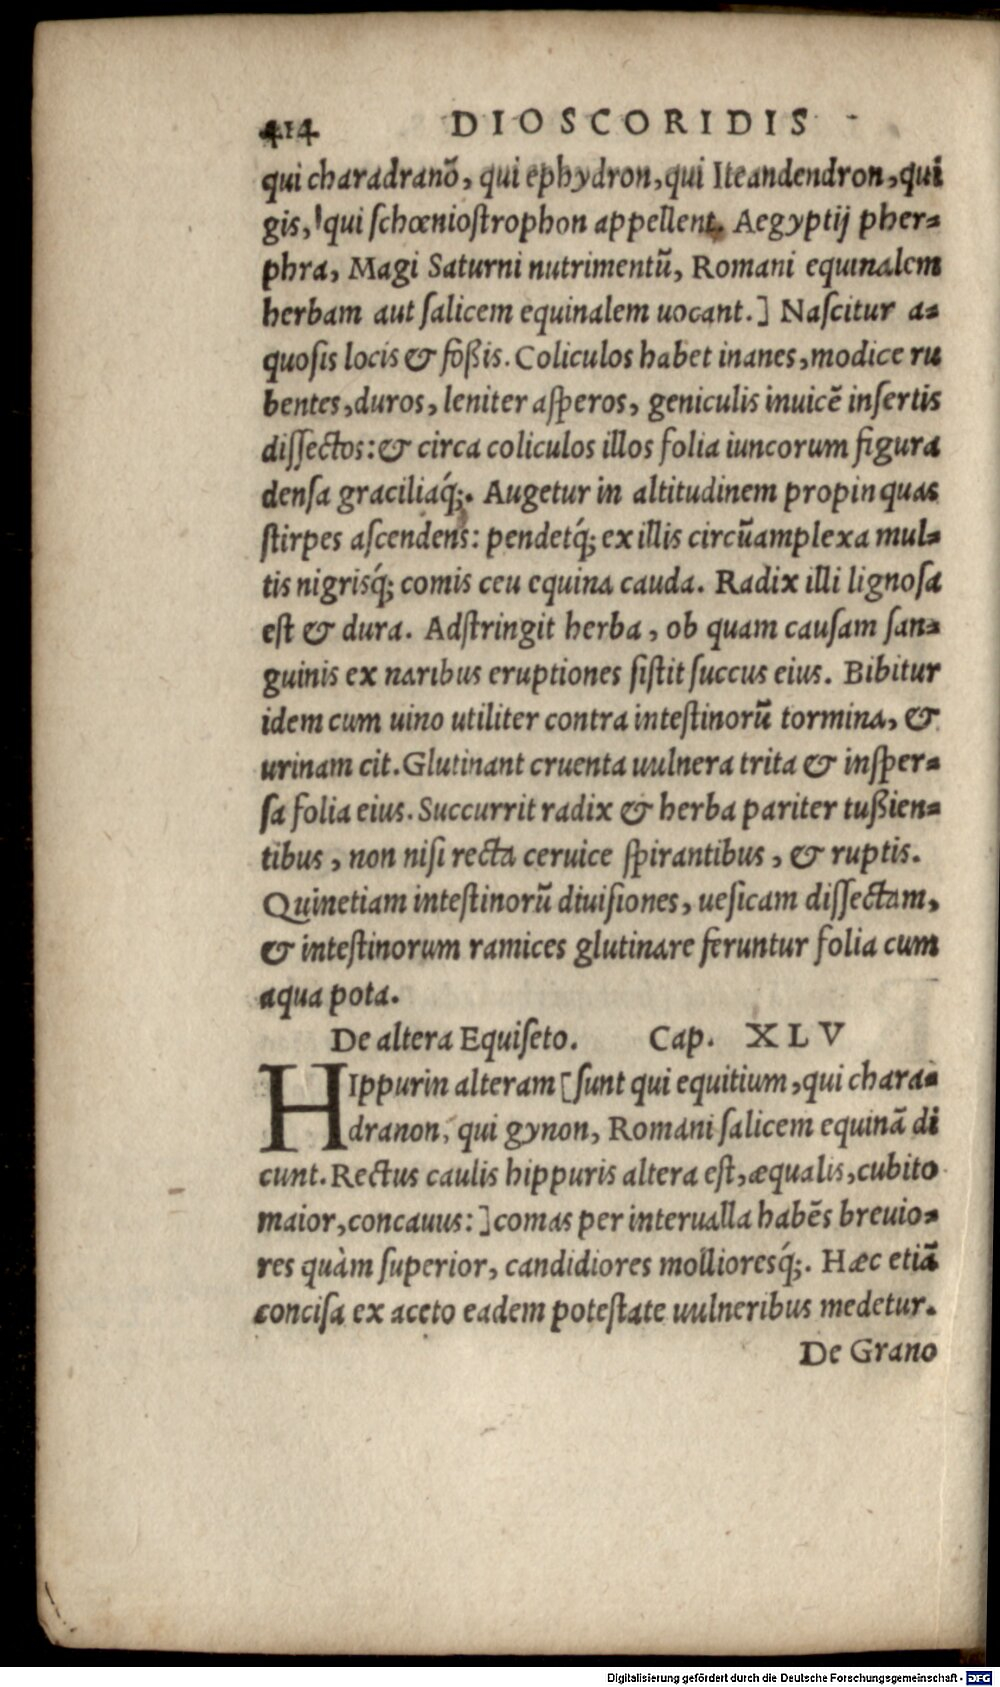 414 DIOSCORIDIS
qui charadranõ, qui ephydron, qui Iteandendron, qui
gis, qui schœniostrophon appellent. Aegyptij pher-
phra, Magi Saturni nutrimentũ, Romani equinalem
herbam aut salicem equinalem uocant.] Nascitur a-
quosis locis & foßis. Coliculos habet inanes, modice ru
bentes, duros, leniter asperos, geniculis inuicẽ insertis
dissectos: & circa coliculos illos folia iuncorum figura
densa graciliaq́;. Augetur in altitudinem propinquas
stirpes ascendens: pendetq́; ex illis circũamplexa mul-
tis nigrisq́; comis ceu equina cauda. Radix illi lignosa
est & dura. Adstringit herba, ob quam causam san-
guinis ex naribus eruptiones sistit succus eius. Bibitur
idem cum uino utiliter contra intestinorũ tormina, &
urinam cit. Glutinant cruenta uulnera trita & insper-
sa folia eius. Succurrit radix & herba pariter tußien-
tibus, non nisi recta ceruice spirantibus, & ruptis.
Quinetiam intestinorũ diuisiones, uesicam dissectam,
& intestinorum ramices glutinare feruntur folia cum
aqua pota.
De altera Equiseto. Cap. XLV
HIppurin alteram [sunt qui equitium, qui chara-
dranon, qui gynon, Romani salicem equinã di
cunt. Rectus caulis hippuris altera est, æqualis, cubito
maior, concauus:] comas per interualla habẽs breuio-
res quàm superior, candidiores mollioresq́;. Hæc etiã
concisa ex aceto eadem potestate uulneribus medetur.
De Grano
Digitalisierung gefördert durch die Deutsche Forschungsgemeinschaft - DFG